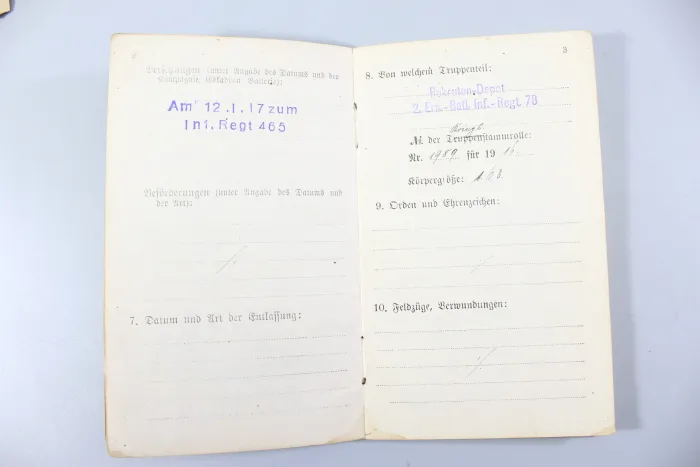 Versetzungen (unter Angabe des Datums und der
Compagnie, Eskadron Batterie):
Am 12.1.17 zum
Inf. Regt 465
Beförderungen (unter Angabe des Datums und
der Art):
7. Datum und Art der Entlassung:
3
8. Von welchem Truppenteil:
Rekruten-Depot
2. Ers.-Batl. Inf.-Regt 78
№ der Truppenstammrolle:
Nr. 1989 für 19 16
Körpergröße: 1,63
9. Orden und Ehrenzeichen:
10. Feldzüge, Verwundungen: